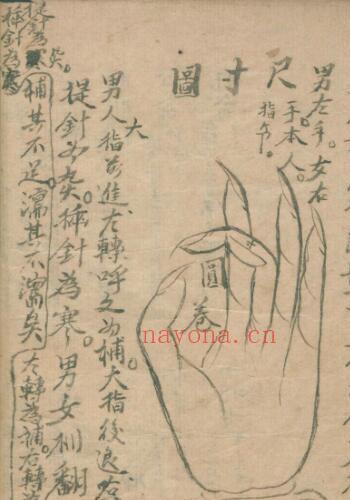 男左手。女右
手。本人。
尺寸圖
圓
男人大指前進左轉呼之為補大指後退右
提針為炙。插針為寒。男女相翻
補其不足。濡其不濡矣
左轉為補。右轉
提針為炙。
插針為寒
nayona.cn